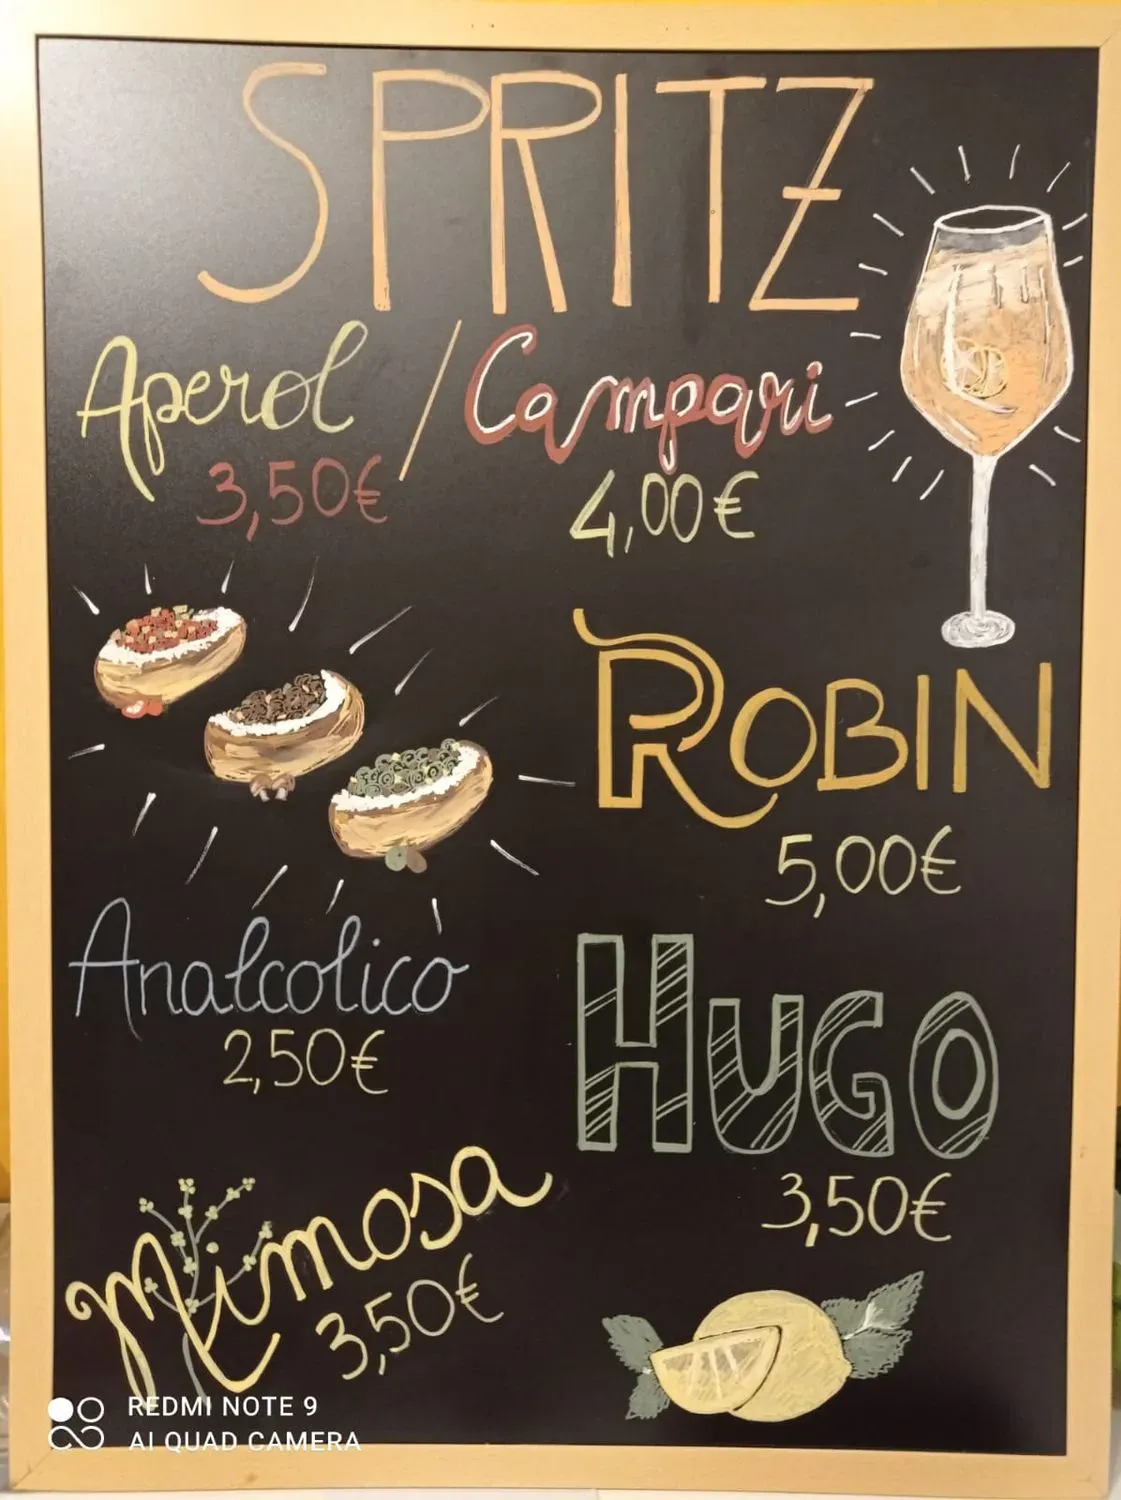 SPRITZ
Aperol / Campari
3,50€ 4,00€
ROBIN
5,00€
Analcolico
2,50€
HUGO
3,50€
Mimosa
3,50€
REDMI NOTE 9
AI QUAD CAMERA